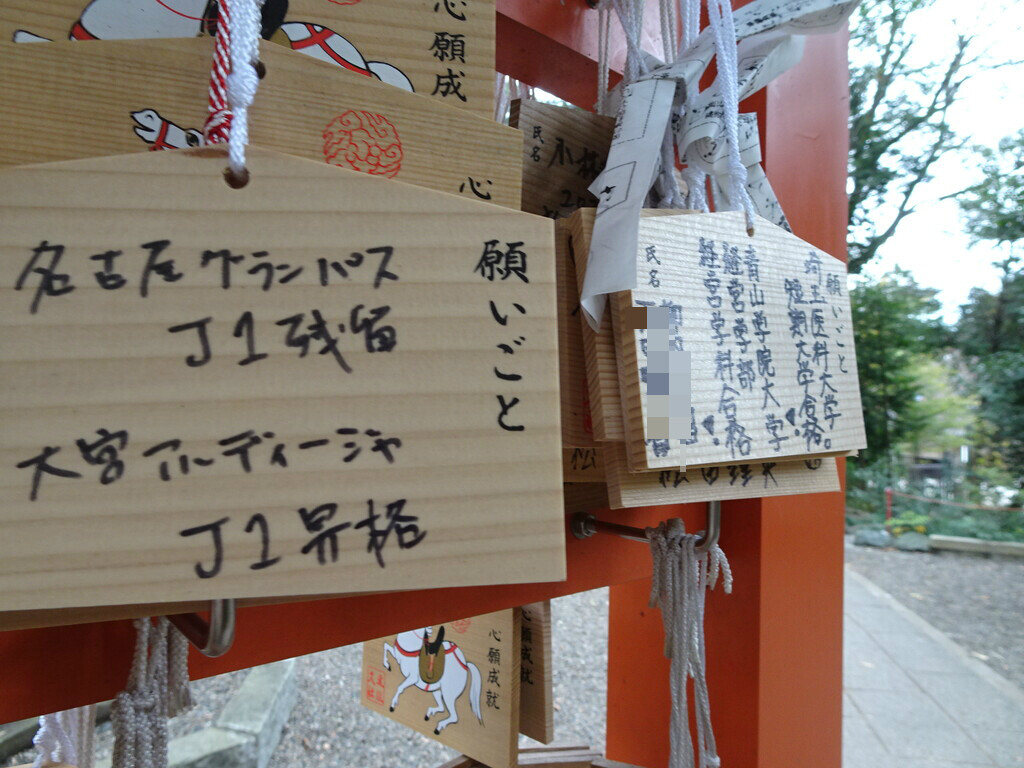 心願成
心
願いごと
名古屋グランパス
J1残留
大宮アルディージャ
J1昇格
氏名
願いごと
埼玉医科大学
短期大学合格。
青山学院大学
経営学部
経営学科合格
氏名
心願成就
願成就